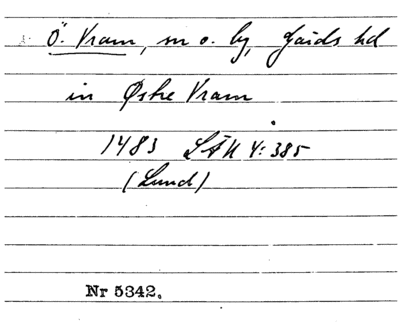 Ö. Vram, sn o. by, Gärds hd
in Østre Vram
1483 LÄU 4:385
(Lund)
Nr 5342.